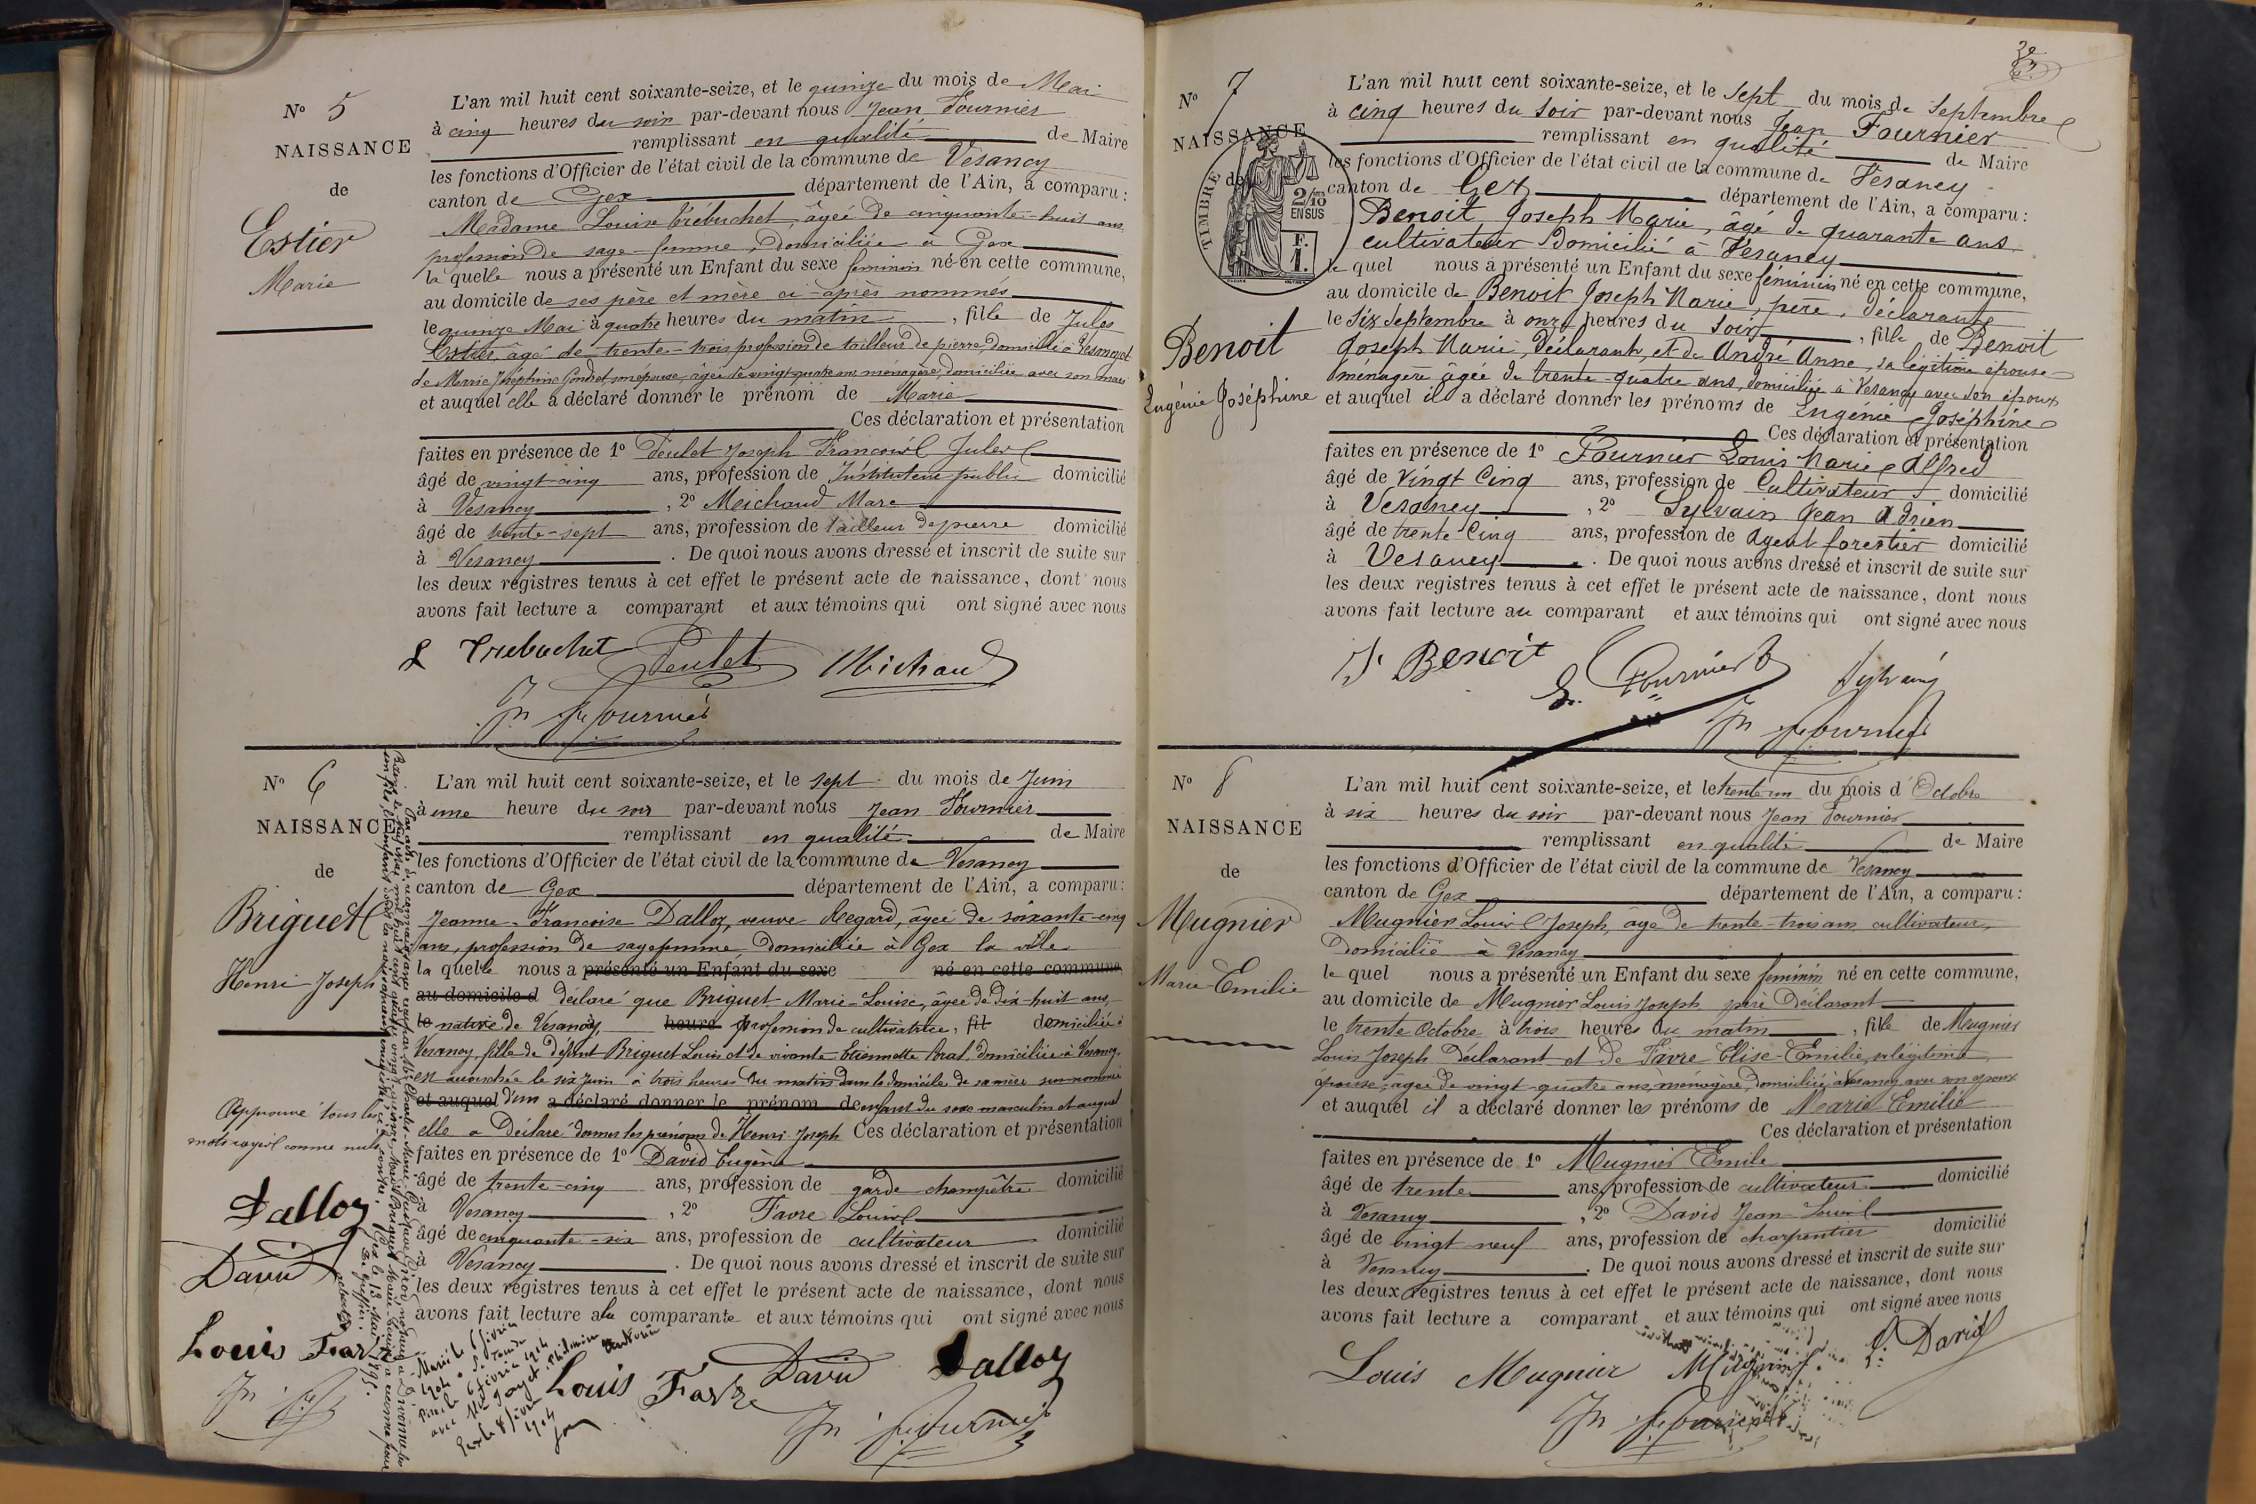 N° 5
NAISSANCE
de
Estier
Marie
L'an mil huit cent soixante-seize, et le quinze du mois de Mai
à cinq heures du soir par-devant nous Jean Fournier
remplissant en qualité de Maire
les fonctions d'Officier de l'état civil de la commune de Vesancy
canton de Gex département de l'Ain, a comparu :
Madame Louise Trébuchet, âgée de cinquante-huit ans
profession de sage-femme, domiciliée à Gex
la quelle nous a présenté un Enfant du sexe féminin né en cette commune,
au domicile de ses père et mère ci-après nommés
le quinze Mai à quatre heures du matin, fille de Jules
Estier âgé de trente-trois profession de tailleur de pierre, domicilié à Vesancy et
de Marie Joséphine Gondret son épouse, âgée de vingt-quatre ans ménagère, domiciliée avec son mari
et auquel elle a déclaré donner le prénom de Marie
Ces déclaration et présentation
faites en présence de 1° Joseph François Jules
âgé de vingt-cinq ans, profession de Instituteur public domicilié
à Vesancy, 2° Meichaud Marc
âgé de trente-sept ans, profession de tailleur de pierre domicilié
à Vesancy. De quoi nous avons dressé et inscrit de suite sur
les deux registres tenus à cet effet le présent acte de naissance, dont nous
avons fait lecture a comparant et aux témoins qui ont signé avec nous
L Trebuchet Michaud
Jn Fournier
N° 6
NAISSANCE
de
Briguet
Henri Joseph
Approuvé tous les
mots rayés comme nuls
Dalloz
David
Louis Favre
L'an mil huit cent soixante-seize, et le sept du mois de Juin
à une heure du soir par-devant nous Jean Fournier
remplissant en qualité de Maire
les fonctions d'Officier de l'état civil de la commune de Vesancy
canton de Gex département de l'Ain, a comparu :
Jeanne-Françoise Dalloz, veuve Regard, âgée de soixante-cinq
ans, profession de sagefemme domiciliée à Gex la ville
la quelle nous a présenté un Enfant du sexe né en cette commune
au domicile d déclaré que Briguet Marie-Louise, âgée de dix-huit ans,
le native de Vesancy, heure profession de cultivatrice, fil domiciliée à
Vesancy, fille de défunt Briguet Louis et de vivante Etiennette Prat, domiciliée à Vesancy,
est accouchée le six Juin à trois heures du matin dans le domicile de sa mère susnommée
et auquel d'un a déclaré donner le prénom de enfant du sexe masculin et auquel
elle a déclaré donner les prénoms de Henri Joseph Ces déclaration et présentation
faites en présence de 1° David Eugène
âgé de trente-cinq ans, profession de garde champêtre domicilié
à Vesancy, 2° Favre Louis
âgé de cinquante-six ans, profession de cultivateur domicilié
à Vesancy. De quoi nous avons dressé et inscrit de suite sur
les deux registres tenus à cet effet le présent acte de naissance, dont nous
avons fait lecture a la comparante et aux témoins qui ont signé avec nous
Louis Favre David Dalloz
Jn Fournier
N° 7
NAISSANCE
de
TIMBRE
2/10
EN SUS
F.
1.
Benoit
Eugénie Joséphine
L'an mil huit cent soixante-seize, et le sept du mois de Septembre
à cinq heures du soir par-devant nous Jean Fournier
remplissant en qualité de Maire
les fonctions d'Officier de l'état civil de la commune de Vesancy
canton de Gex département de l'Ain, a comparu :
Benoit Joseph Marie, âgé de quarante ans
cultivateur domicilié à Vesancy
le quel nous a présenté un Enfant du sexe féminin né en cette commune,
au domicile de Benoit Joseph Marie, père, déclarant
le six Septembre à onze heures du soir, fille de Benoit
Joseph Marie, déclarant, et de André Anne, sa légitime épouse
ménagère âgée de trente-quatre ans, domiciliée à Vesancy avec son époux
et auquel il a déclaré donner les prénoms de Eugénie Joséphine
Ces déclaration et présentation
faites en présence de 1° Fournier Louis Marie Alfred
âgé de Vingt Cinq ans, profession de Cultivateur domicilié
à Vesancy, 2° Sylvain Jean Adrien
âgé de trente Cinq ans, profession de Agent forestier domicilié
à Vesancy. De quoi nous avons dressé et inscrit de suite sur
les deux registres tenus à cet effet le présent acte de naissance, dont nous
avons fait lecture au comparant et aux témoins qui ont signé avec nous
J. Benoit Fournier Sylvain
Jn Fournier
N° 8
NAISSANCE
de
Mugnier
Marie Emilie
L'an mil huit cent soixante-seize, et le trente un du mois d'Octobre
à six heures du soir par-devant nous Jean Fournier
remplissant en qualité de Maire
les fonctions d'Officier de l'état civil de la commune de Vesancy
canton de Gex département de l'Ain, a comparu :
Mugnier Louis Joseph, âgé de trente-trois ans cultivateur,
domicilié à Vesancy
le quel nous a présenté un Enfant du sexe féminin né en cette commune,
au domicile de Mugnier Louis Joseph père Déclarant
le trente Octobre à trois heures du matin, fille de Mugnier
Louis Joseph Déclarant et de Favre Elise-Emilie, sa légitime
épouse, âgée de vingt-quatre ans, ménagère, domiciliée à Vesancy avec son époux
et auquel il a déclaré donner les prénoms de Marie Emilie
Ces déclaration et présentation
faites en présence de 1° Mugnier Emile
âgé de trente ans, profession de cultivateur domicilié
à Vesancy, 2° David Jean-Louis
âgé de vingt-neuf ans, profession de charpentier domicilié
à Vesancy. De quoi nous avons dressé et inscrit de suite sur
les deux registres tenus à cet effet le présent acte de naissance, dont nous
avons fait lecture a comparant et aux témoins qui ont signé avec nous
Louis Mugnier L. David
Jn Fournier